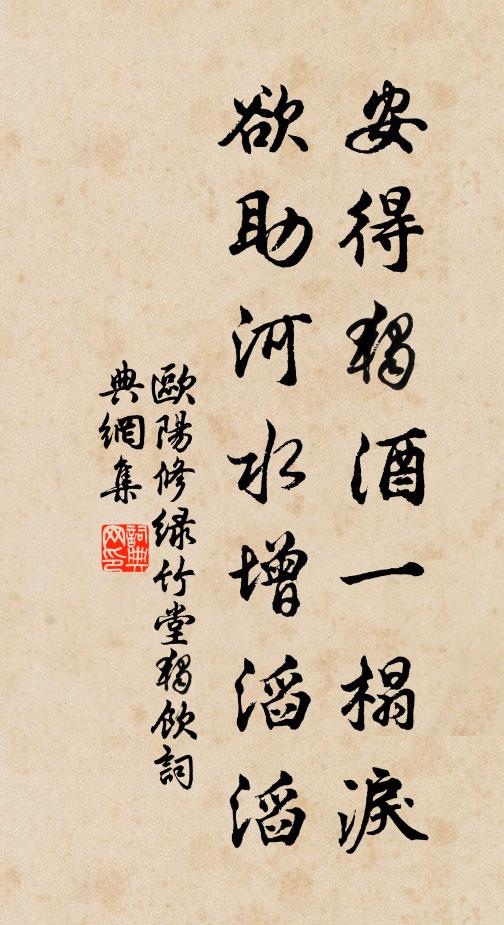 安得獨酒一榻淚
欲助河水增滔滔
歐陽修緑竹堂獨飲詞
典網集
詞典
网印